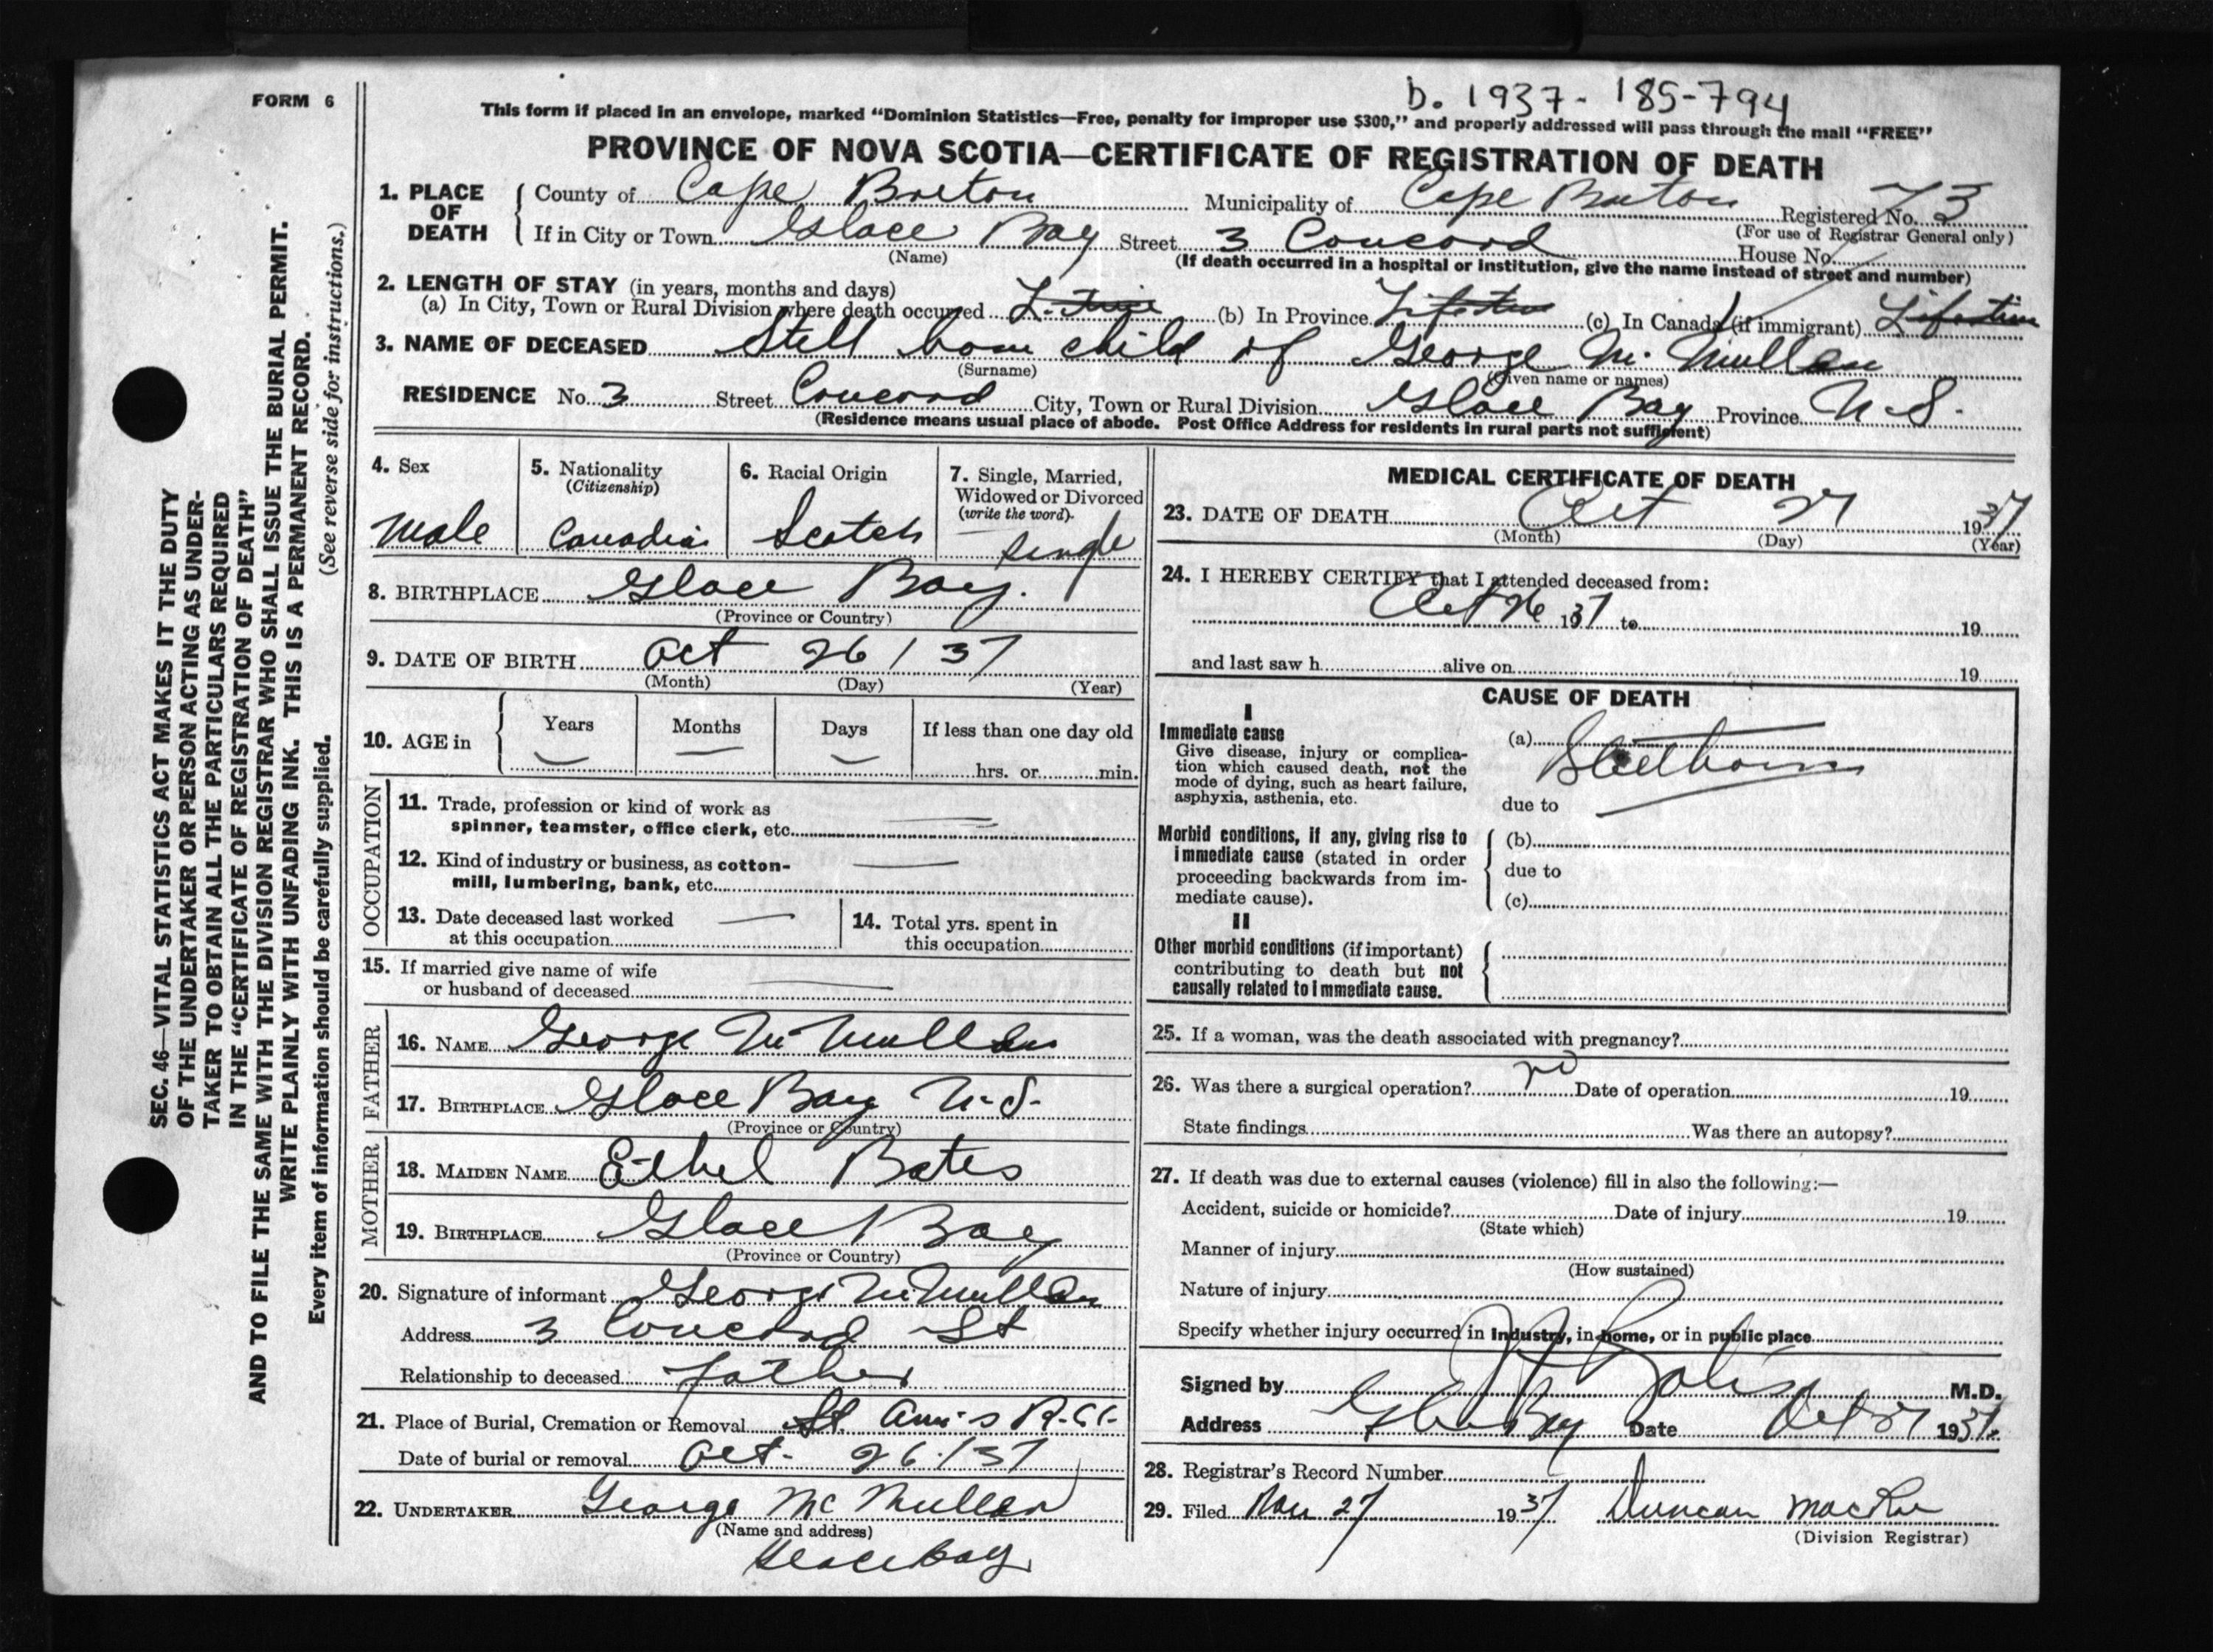 FORM 6
b. 1937- 185-794
This form if placed in an envelope, marked "Dominion Statistics—Free, penalty for improper use $300," and properly addressed will pass through the mail "FREE"
PROVINCE OF NOVA SCOTIA—CERTIFICATE OF REGISTRATION OF DEATH
1. PLACE OF DEATH County of Cape Breton Municipality of Cape Breton Registered No. 73
(For use of Registrar General only)
If in City or Town Glace Bay Street 3 Concord House No.
(Name) (If death occurred in a hospital or institution, give the name instead of street and number)
2. LENGTH OF STAY (in years, months and days)
(a) In City, Town or Rural Division where death occurred L-time (b) In Province Lifetime (c) In Canada (if immigrant) Lifetime
3. NAME OF DECEASED Still born child of George Mc Mullen
(Surname) (Given name or names)
RESIDENCE No. 3 Street Concord City, Town or Rural Division Glace Bay Province N-S.
(Residence means usual place of abode. Post Office Address for residents in rural parts not sufficient)
4. Sex 5. Nationality (Citizenship) 6. Racial Origin 7. Single, Married, Widowed or Divorced (write the word)
Male Canadian Scotch Single
8. BIRTHPLACE Glace Bay.
(Province or Country)
9. DATE OF BIRTH Oct 26 / 37
(Month) (Day) (Year)
10. AGE in Years Months Days If less than one day old
hrs. or min.
OCCUPATION
11. Trade, profession or kind of work as
spinner, teamster, office clerk, etc.
12. Kind of industry or business, as cotton-
mill, lumbering, bank, etc.
13. Date deceased last worked
at this occupation
14. Total yrs. spent in
this occupation
15. If married give name of wife
or husband of deceased
FATHER
16. NAME George Mc Mullen
17. BIRTHPLACE Glace Bay N-S-
(Province or Country)
MOTHER
18. MAIDEN NAME Ethel Bates
19. BIRTHPLACE Glace Bay
(Province or Country)
20. Signature of informant George McMullen
Address 3 Concord St
Relationship to deceased father
21. Place of Burial, Cremation or Removal St. Ann's R-C
Date of burial or removal Oct- 26/37
22. UNDERTAKER George Mc Mullen
(Name and address)
Glace Bay
MEDICAL CERTIFICATE OF DEATH
23. DATE OF DEATH Oct 27 1937
(Month) (Day) (Year)
24. I HEREBY CERTIFY that I attended deceased from:
Oct 26 1937 to 19
and last saw h alive on 19
CAUSE OF DEATH
I
Immediate cause
Give disease, injury or complica-
tion which caused death, not the
mode of dying, such as heart failure,
asphyxia, asthenia, etc.
(a) Stillborn
due to
Morbid conditions, if any, giving rise to
immediate cause (stated in order
proceeding backwards from im-
mediate cause).
(b)
due to
(c)
II
Other morbid conditions (if important)
contributing to death but not
causally related to immediate cause.
25. If a woman, was the death associated with pregnancy?
26. Was there a surgical operation? no Date of operation 19
State findings Was there an autopsy?
27. If death was due to external causes (violence) fill in also the following:—
Accident, suicide or homicide? Date of injury 19
(State which)
Manner of injury
(How sustained)
Nature of injury
Specify whether injury occurred in industry, in home, or in public place
Signed by M.D.
Address Glace Bay Date Oct 27 1937.
28. Registrar's Record Number
29. Filed Nov 27 1937 Duncan MacRae
(Division Registrar)
SEC. 46—VITAL STATISTICS ACT MAKES IT THE DUTY
OF THE UNDERTAKER OR PERSON ACTING AS UNDER-
TAKER TO OBTAIN ALL THE PARTICULARS REQUIRED
IN THE "CERTIFICATE OF REGISTRATION OF DEATH"
AND TO FILE THE SAME WITH THE DIVISION REGISTRAR WHO SHALL ISSUE THE BURIAL PERMIT.
WRITE PLAINLY WITH UNFADING INK. THIS IS A PERMANENT RECORD.
Every item of information should be carefully supplied. (See reverse side for instructions.)